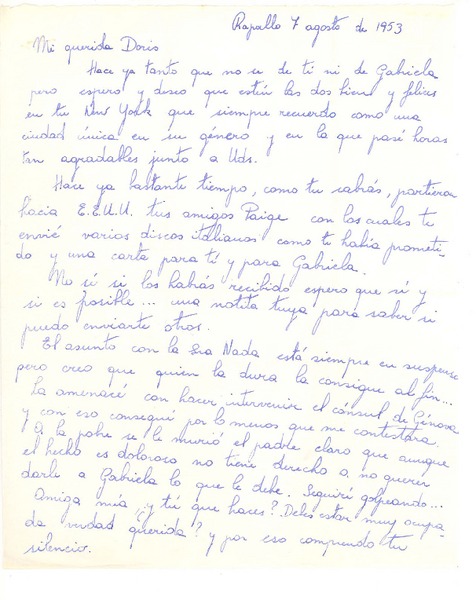 Rapallo 7 agosto de 1953
Mi querida Doris
Hace ya tanto que no se de ti ni de Gabriela
pero espero y deseo que estén las dos bien y felices
en tu New York que siempre recuerdo como una
ciudad única en su género y en la que pasé horas
tan agradables junto a Uds.
Hace ya bastante tiempo, como tu sabrás, partieron
hacia E.E.U.U. tus amigos Paige con los cuales te
envié varios discos italianos como te había prometi-
do y una carta para tí y para Gabriela.
No sé si los habrás recibido espero que sí y
si es posible... una notita tuya para saber si
puedo enviarte otros.
El asunto con la Sra Nada está siempre en suspenso
pero creo que quien la dura la consigue al fin...
La amenacé con hacer intervenir el cónsul de Génova
y con eso conseguí por lo menos que me contestara.
A la pobre se le murió el padre claro que aunque
el hecho es doloroco no tiene derecho a no querer
darle a Gabriela lo que le debe. Seguiré golpeando...
Amiga mía ¿y tú que haces? Debes estar muy ocupa-
da verdad querida? y por eso comprendo tu
silencio.